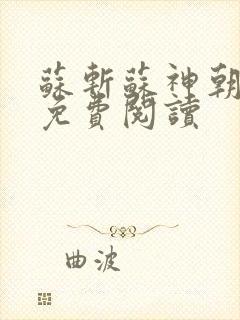 蘇斬蘇神朝
免費閱讀
曲波